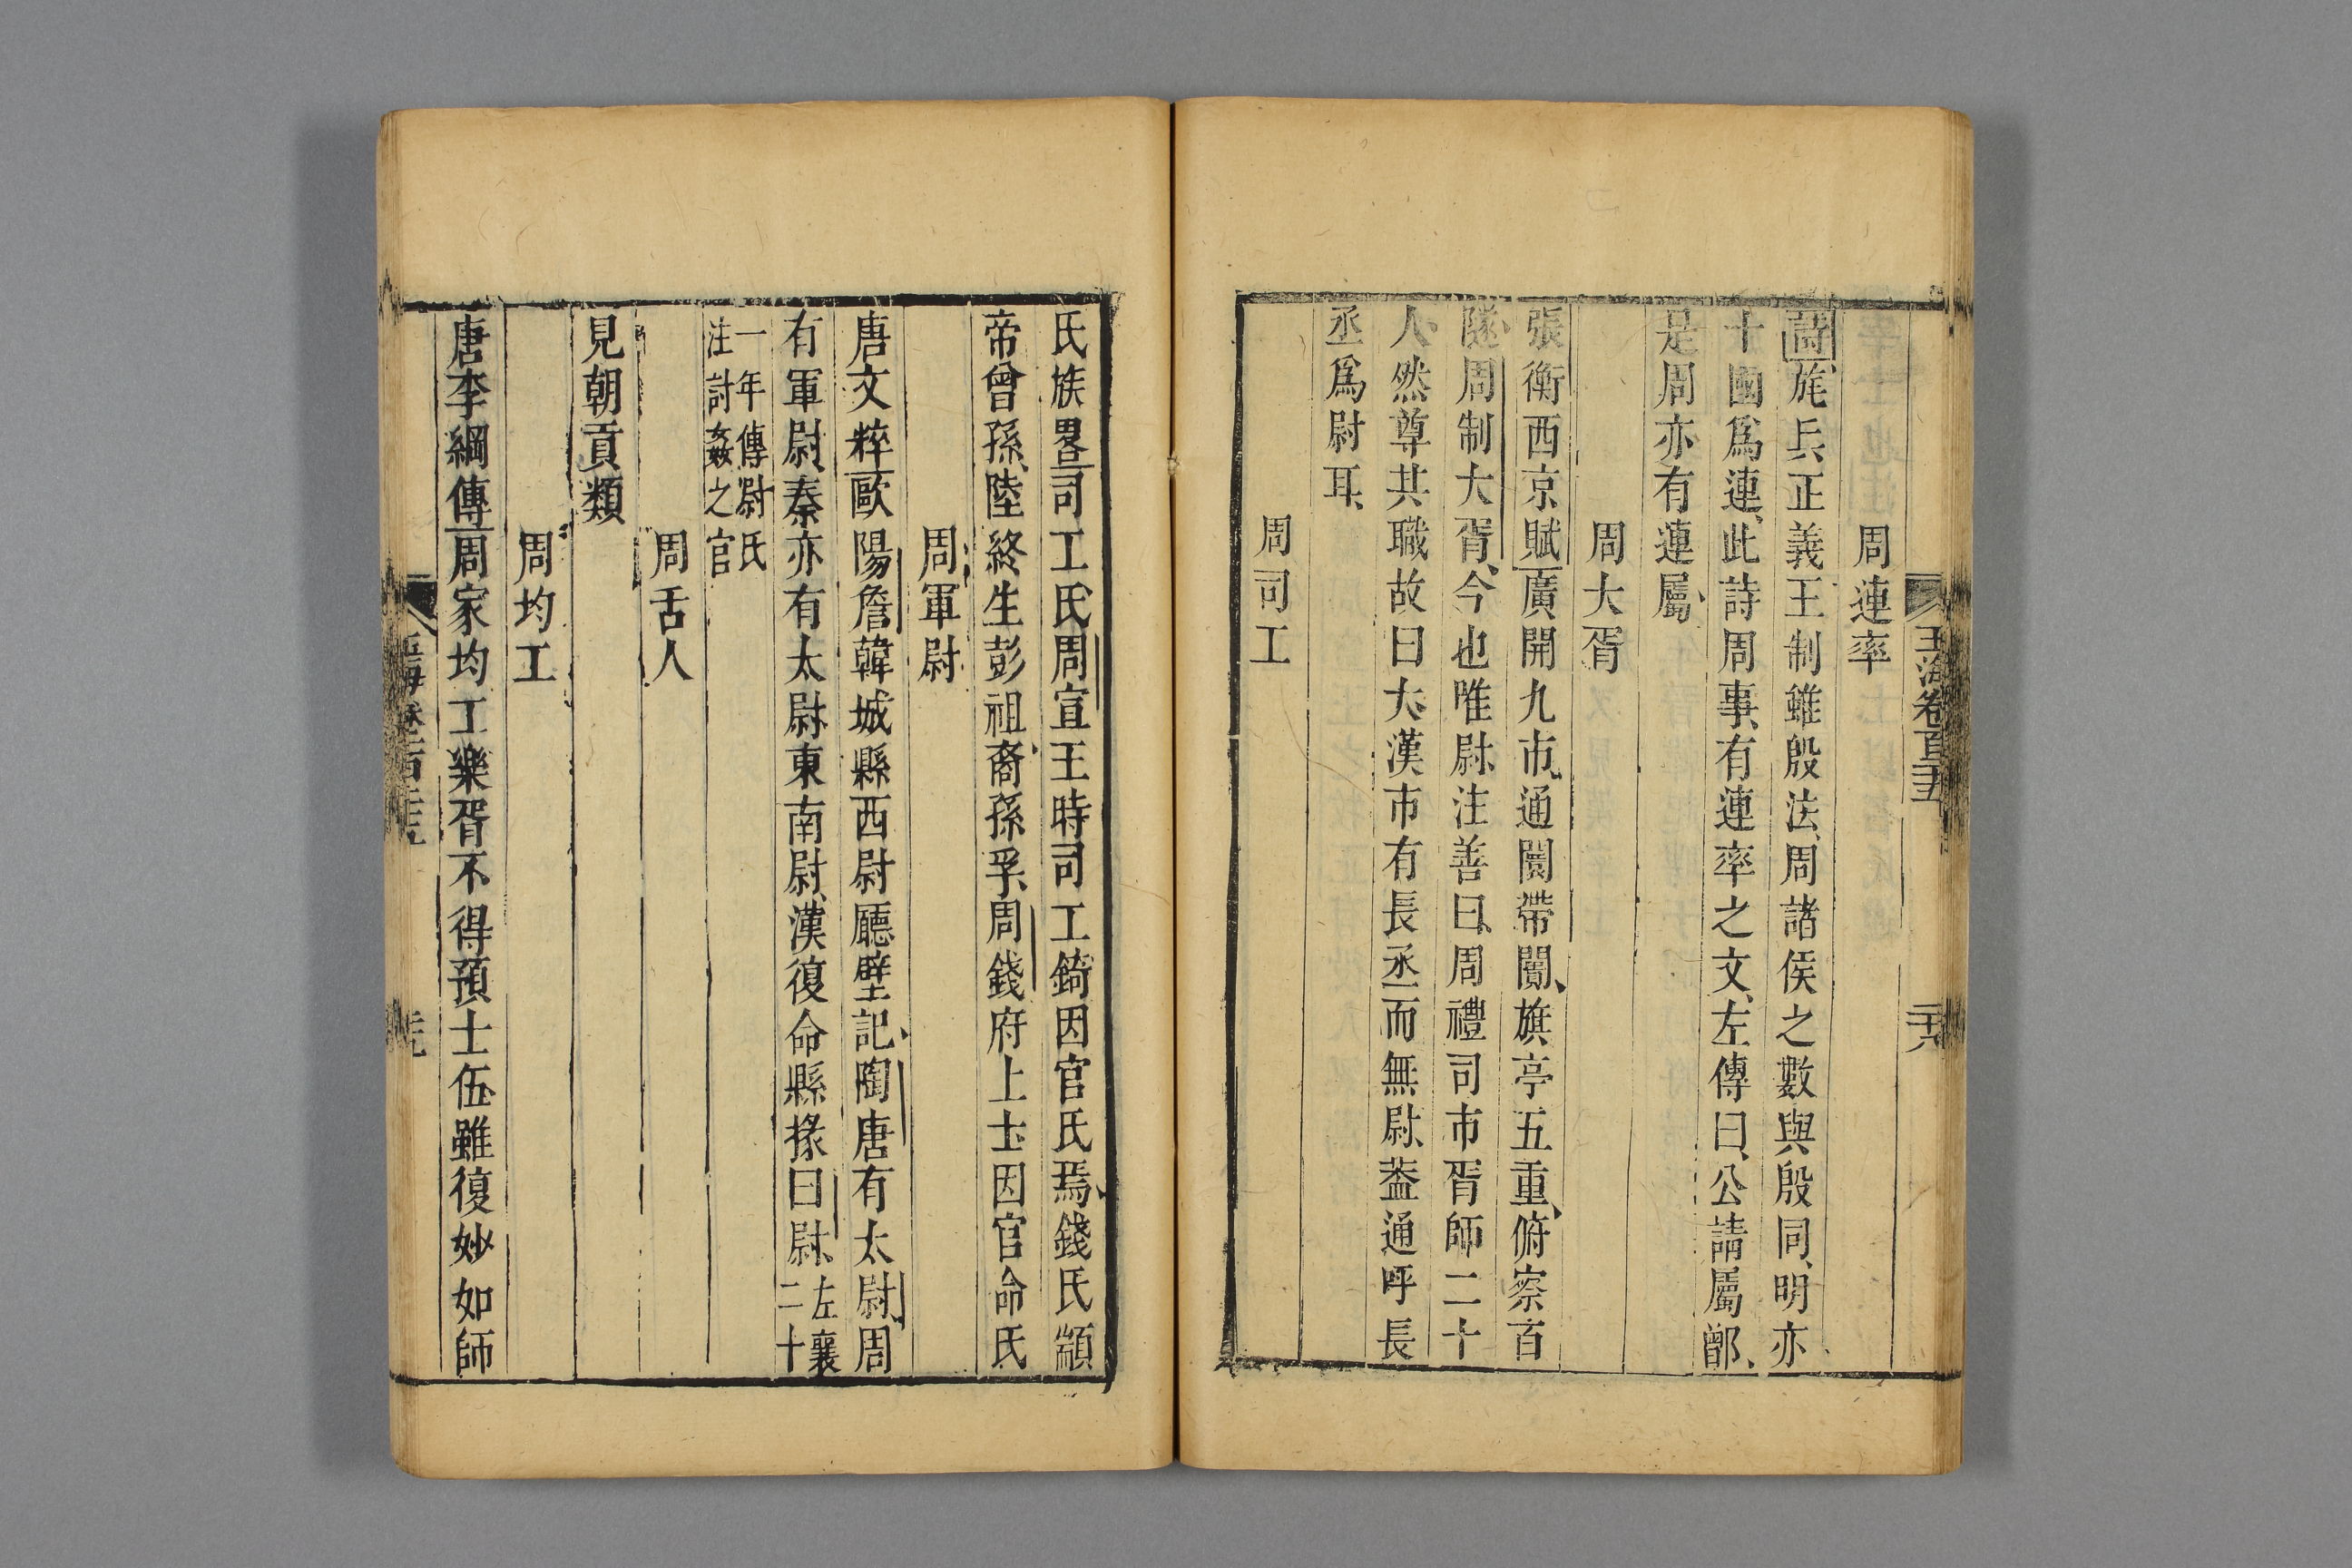 玉海卷百二十五
二十八
周連率
詩旄丘正義王制雖殷法周諸侯之數與殷同明亦
十國爲連此詩周事有連率之文左傳曰公請屬鄫
是周亦有連屬
周大胥
張衡西京賦廣開九市通闤帶闠旗亭五重俯察百
隧周制大胥今也唯尉注善曰周禮司市胥師二十
人然尊其職故曰大漢市有長丞而無尉葢通呼長
丞爲尉耳
周司工
氏族畧司工氏周宣王時司工錡因官氏焉錢氏顓
帝曾孫陸終生彭祖裔孫孚周錢府上士因官命氏
周軍尉
唐文粹歐陽詹韓城縣西尉廳壁記陶唐有太尉周
有軍尉秦亦有太尉東南尉漢復命縣掾曰尉左襄二十
一年傳尉氏注討姦之官
周舌人
見朝貢類
周均工
唐李綱傳周家均工樂胥不得預士伍雖復妙如師